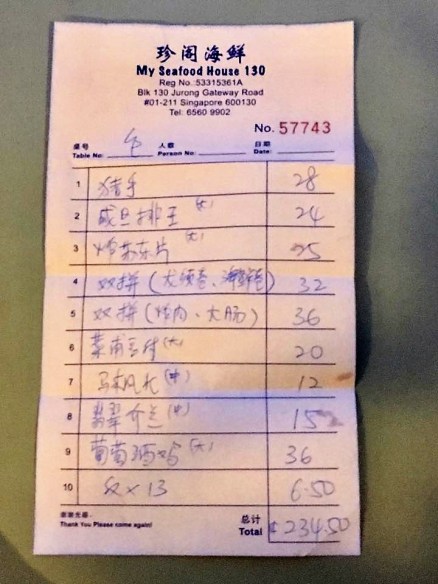 珍阁海鲜
My Seafood House 130
Reg No.:53315361A
Blk 130 Jurong Gateway Road
#01-211 Singapore 600130
Tel: 6560 9902
No. 57743
桌号 人数 日期
Table No: Person No: Date:
1 猪手 28
2 咸旦排王 (大) 24
3 (大) 25
4 双拼 (龙须卷、海鲜卷) 32
5 双拼 (烧肉、大肠) 36
6 菜甫豆付 (大) 20
7 (中) 12
8 翡翠介兰 (中) 15
9 葡萄酒鸡 (大) 36
10 × 13 6.50
谢谢光临.
Thank You Please come again!
总计
Total 234.50